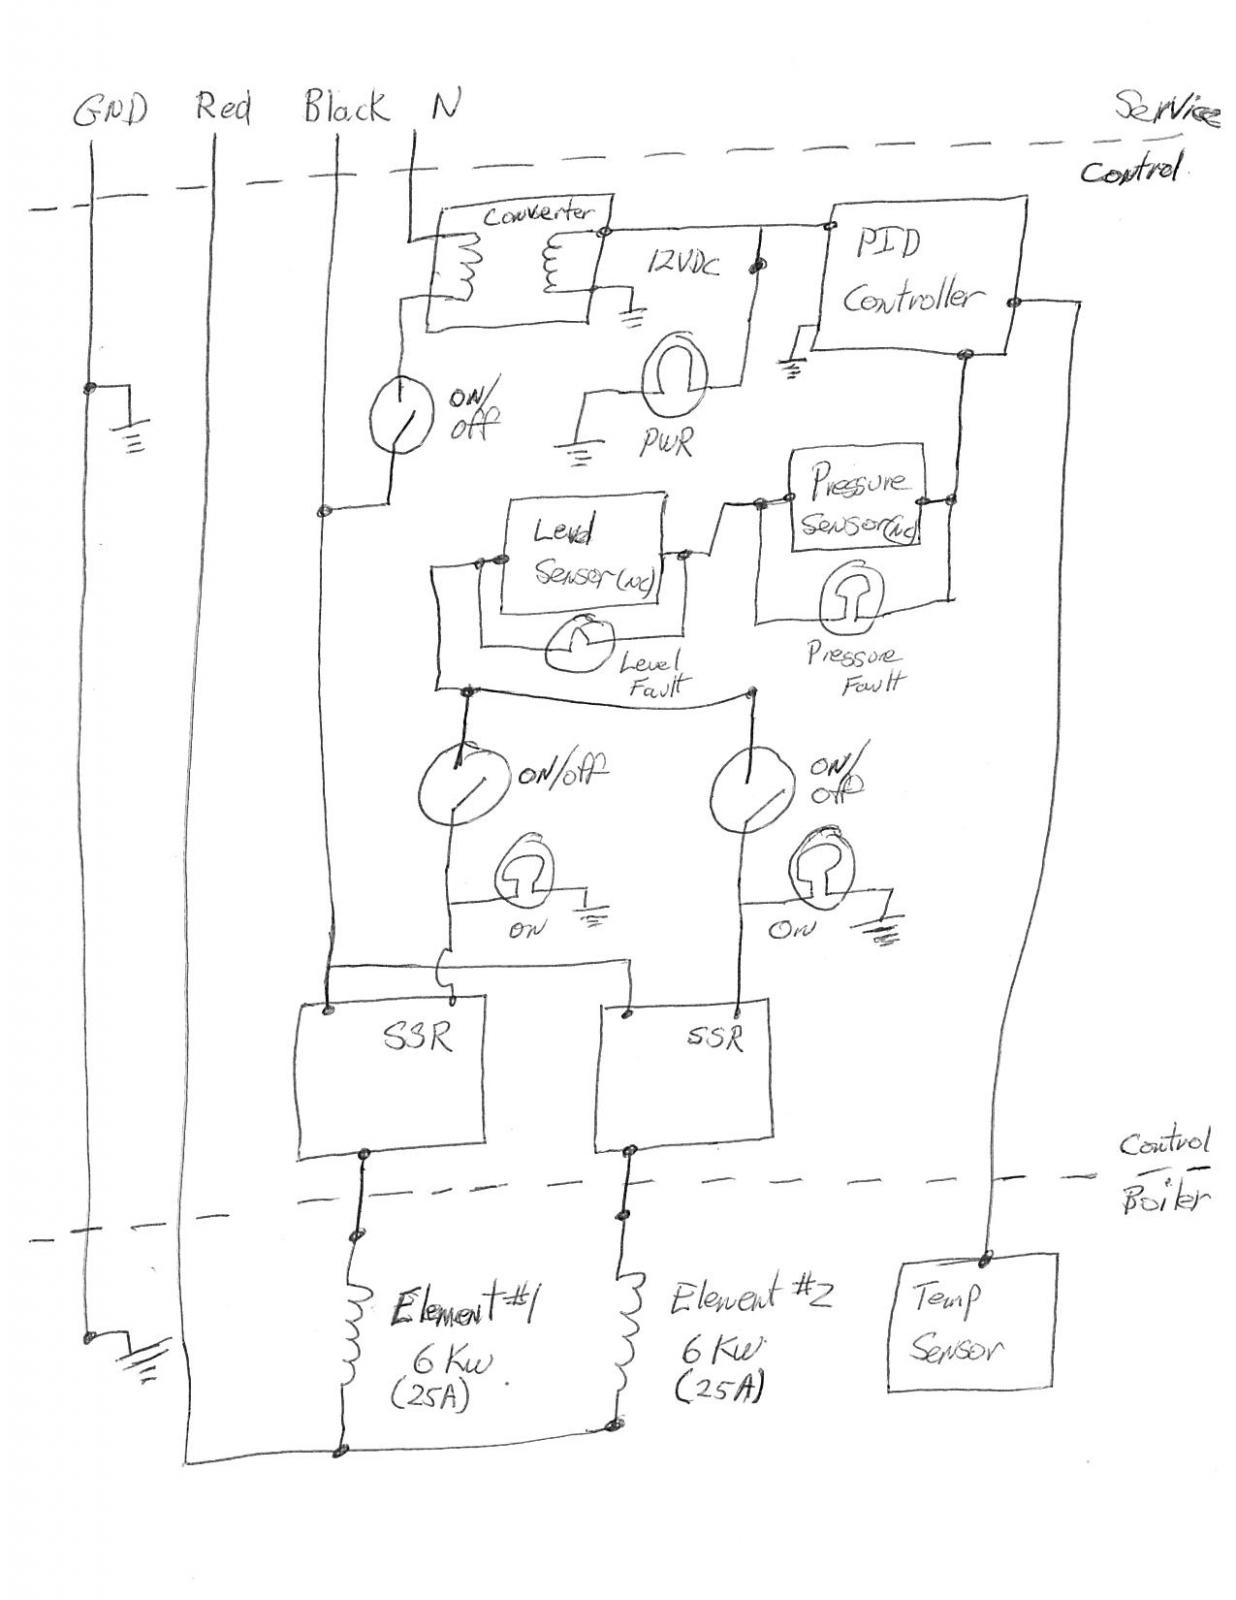 GND Red Black N
Service
Control
Converter
12VDC
PID
Controller
ON/
off
PWR
Pressure
Sensor(NC)
Level
Sensor(NC)
Level
Fault
Pressure
Fault
ON/off
ON/
off
ON
ON
SSR
SSR
Control
Boiler
Element #1
6 KW
(25A)
Element #2
6 KW
(25A)
Temp
Sensor